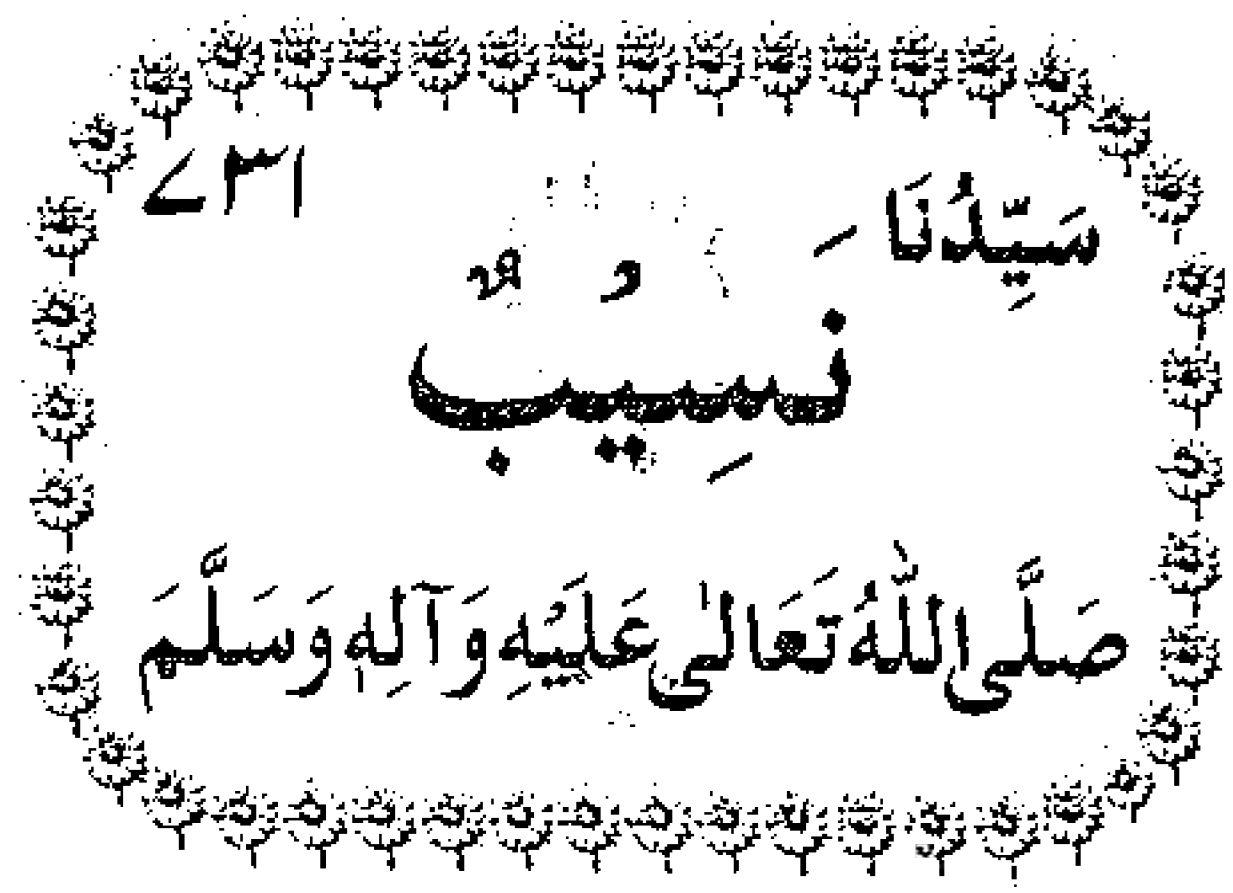 سَيِّدُنَا ۷۳۱
نَسِيْبٌ
صَلَّى اللّٰهُ تَعَالٰى عَلَيْهِ وَآلِهٖ وَسَلَّمَ